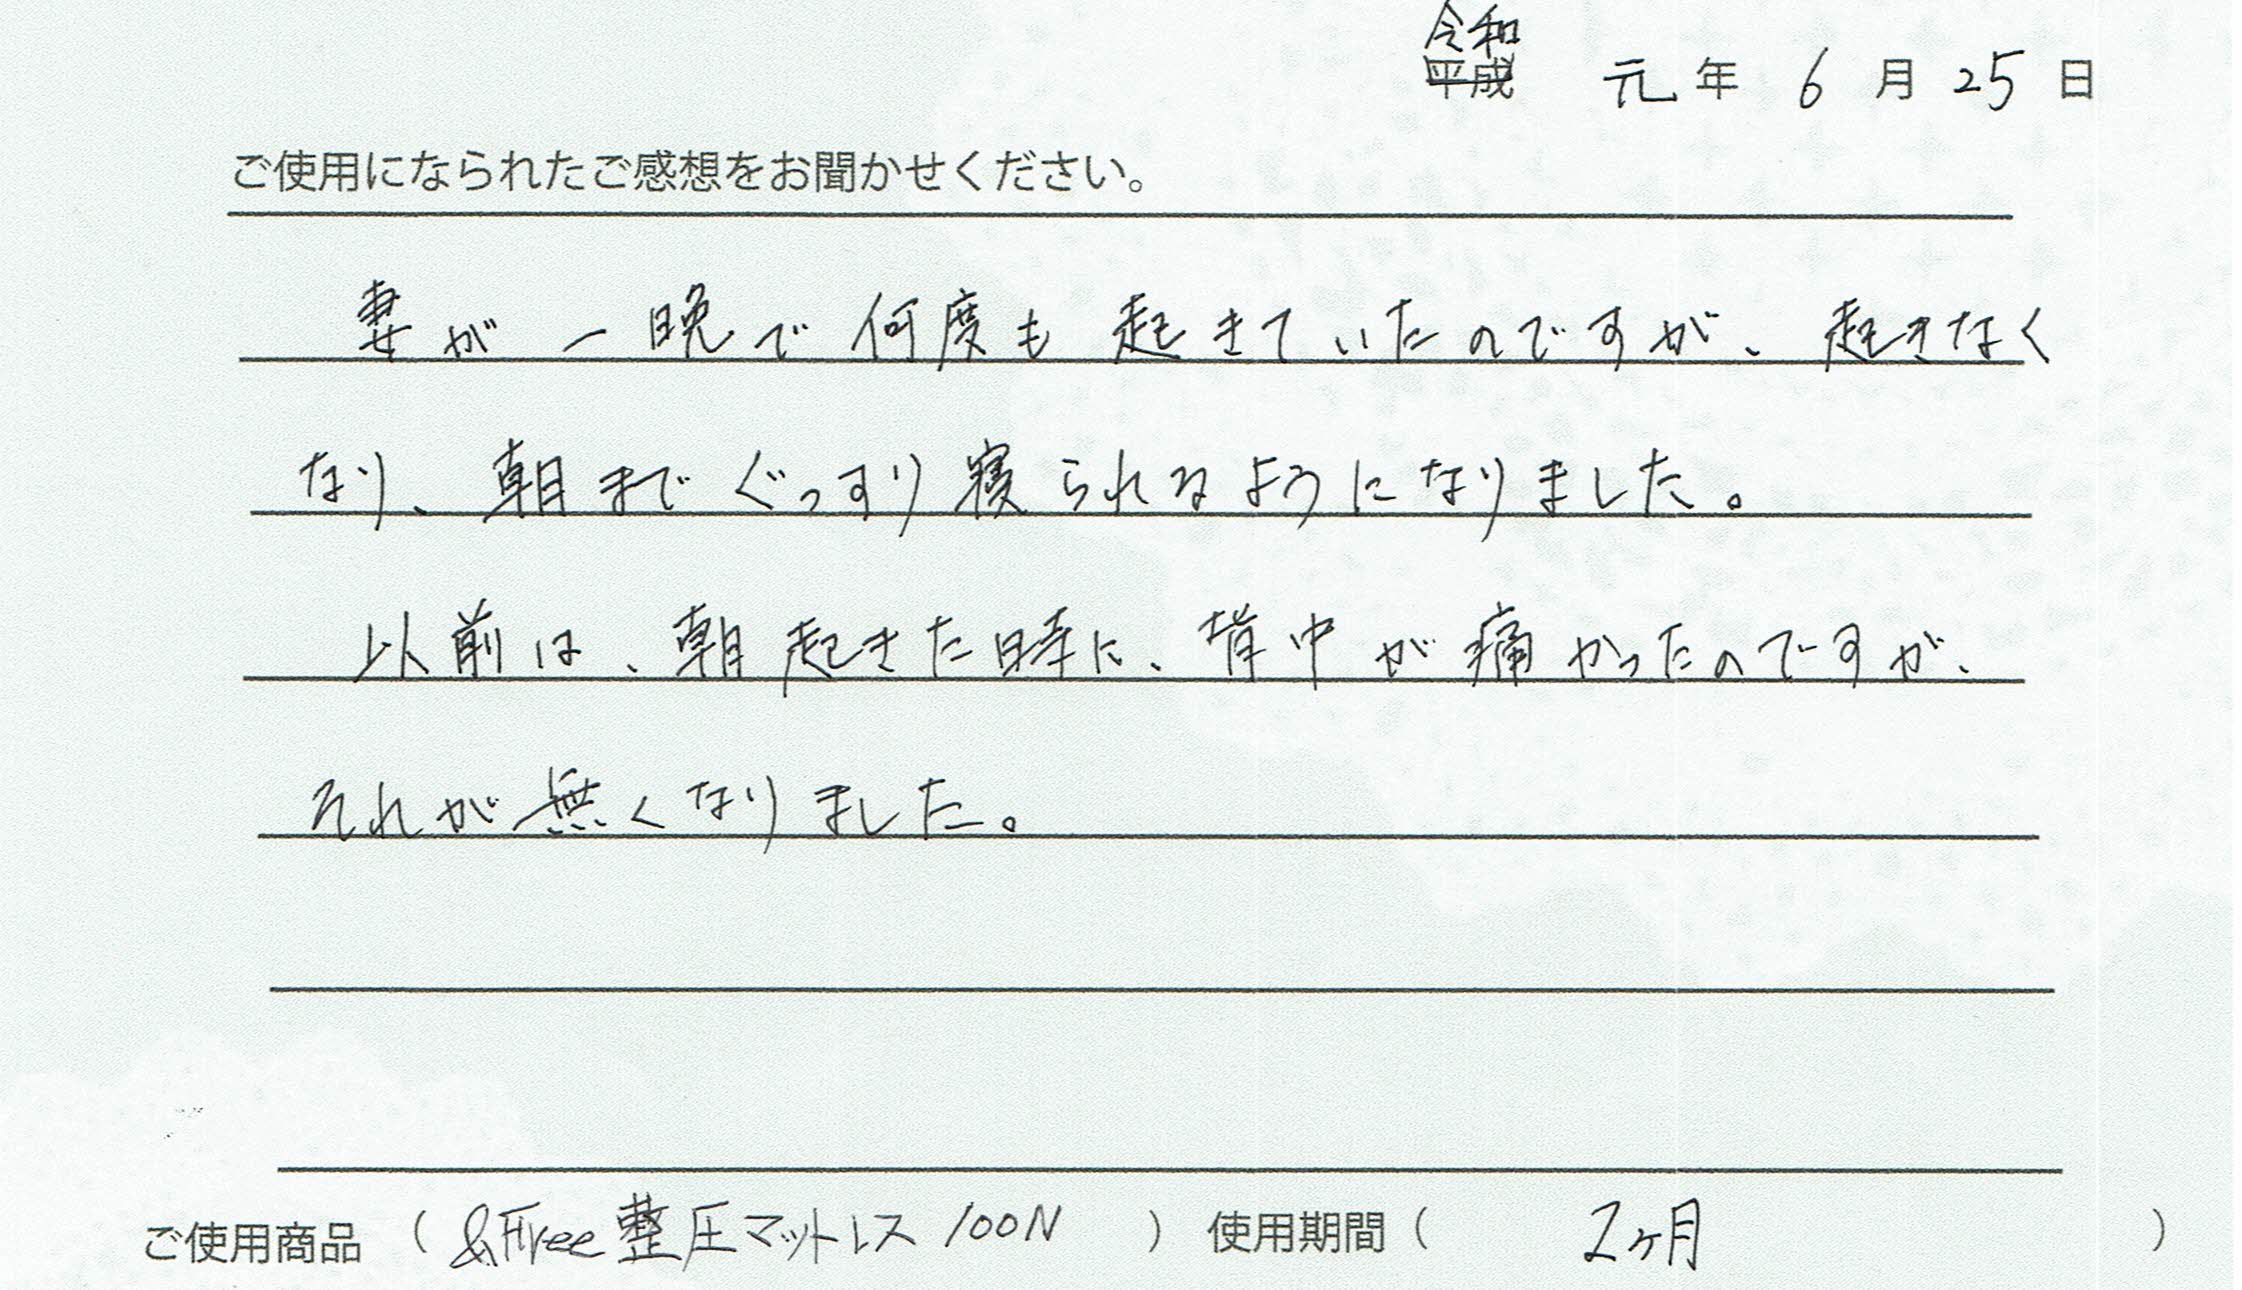 令和
平成 元年 6月 25日
ご使用になられたご感想をお聞かせください。
妻が一晩で何度も起きていたのですが、起きなく
なり、朝までぐっすり寝られるようになりました。
以前は、朝起きた時に、背中が痛かったのですが、
それが無くなりました。
ご使用商品 ( &Free 整圧マットレス 100N ) 使用期間 ( 2ヶ月 )